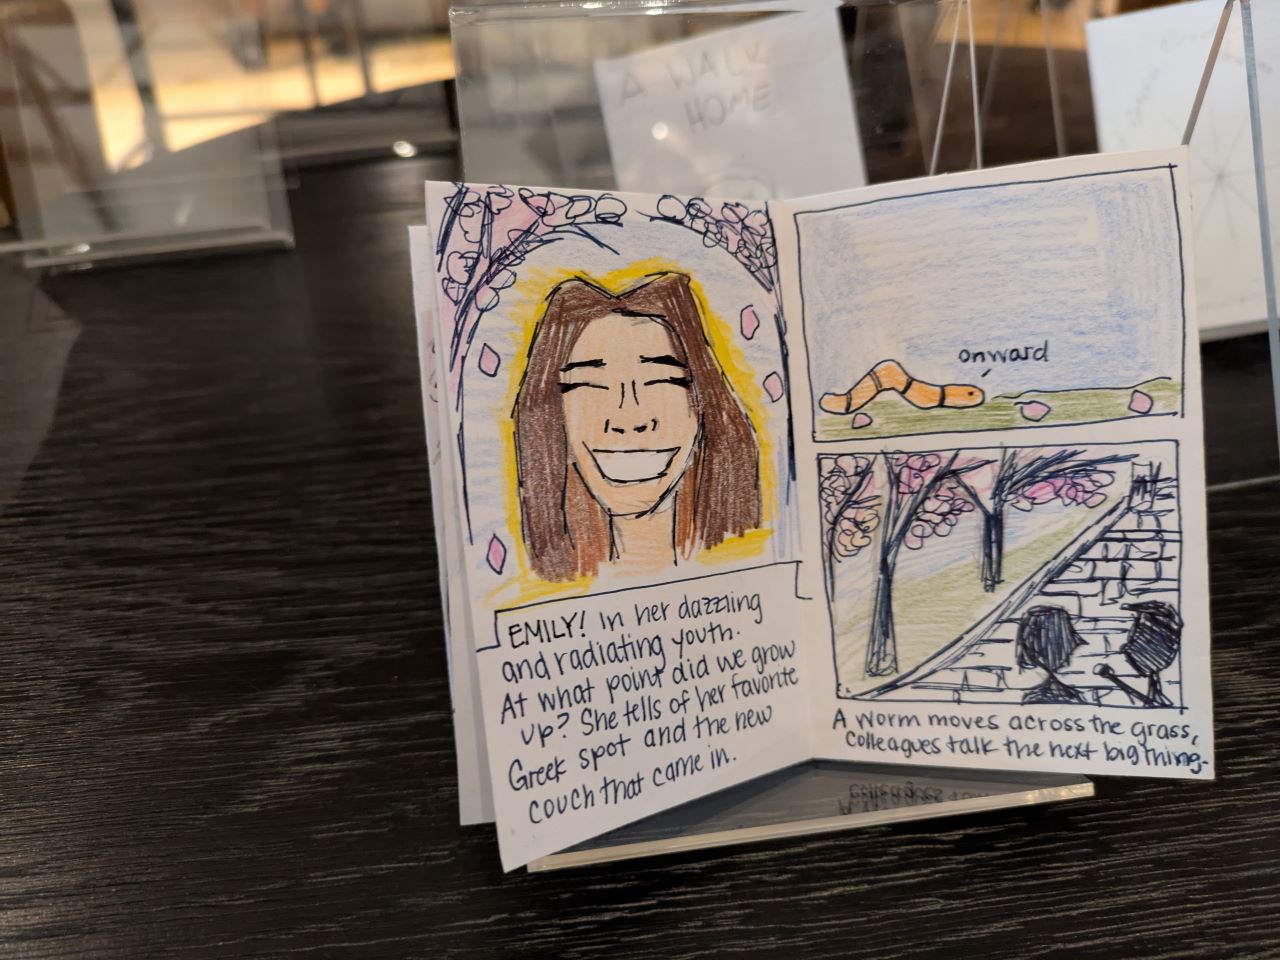 A WALK
HOME
EMILY! In her dazzling
and radiating youth.
At what point did we grow
up? She tells of her favorite
Greek spot and the new
couch that came in.
onward
A worm moves across the grass,
Colleagues talk the next big thing.